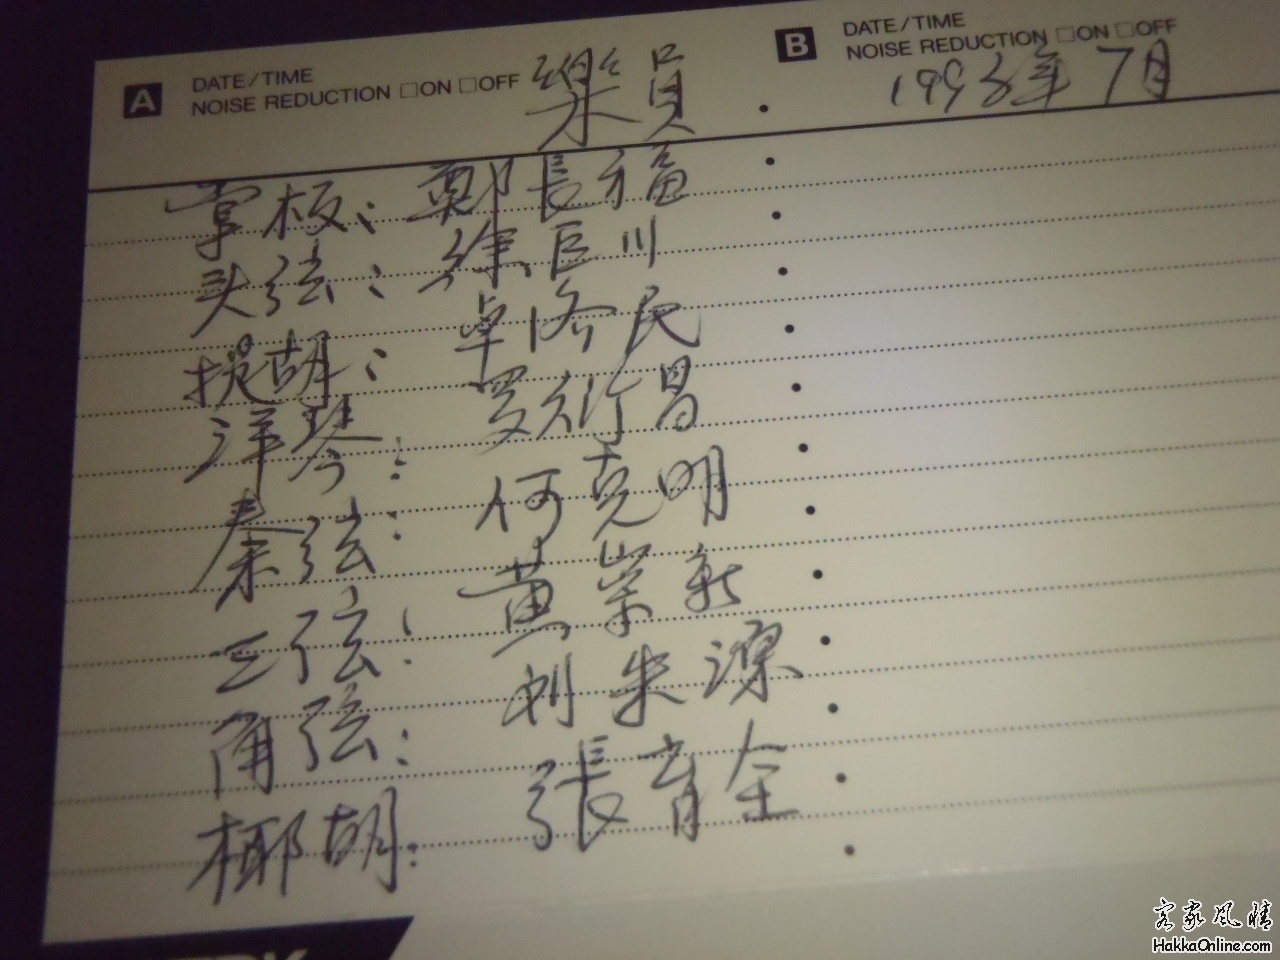 A DATE/TIME
NOISE REDUCTION □ON □OFF
樂員
B DATE/TIME
NOISE REDUCTION □ON □OFF
1993年7月
掌板: 鄭長福
头弦: 徐巨川
提胡: 卓济民
洋琴: 罗衍昌
秦弦: 何克明
三弦: 黄崇新
角弦: 刘朱深
椰胡: 張育全
客家风情
HakkaOnline.com